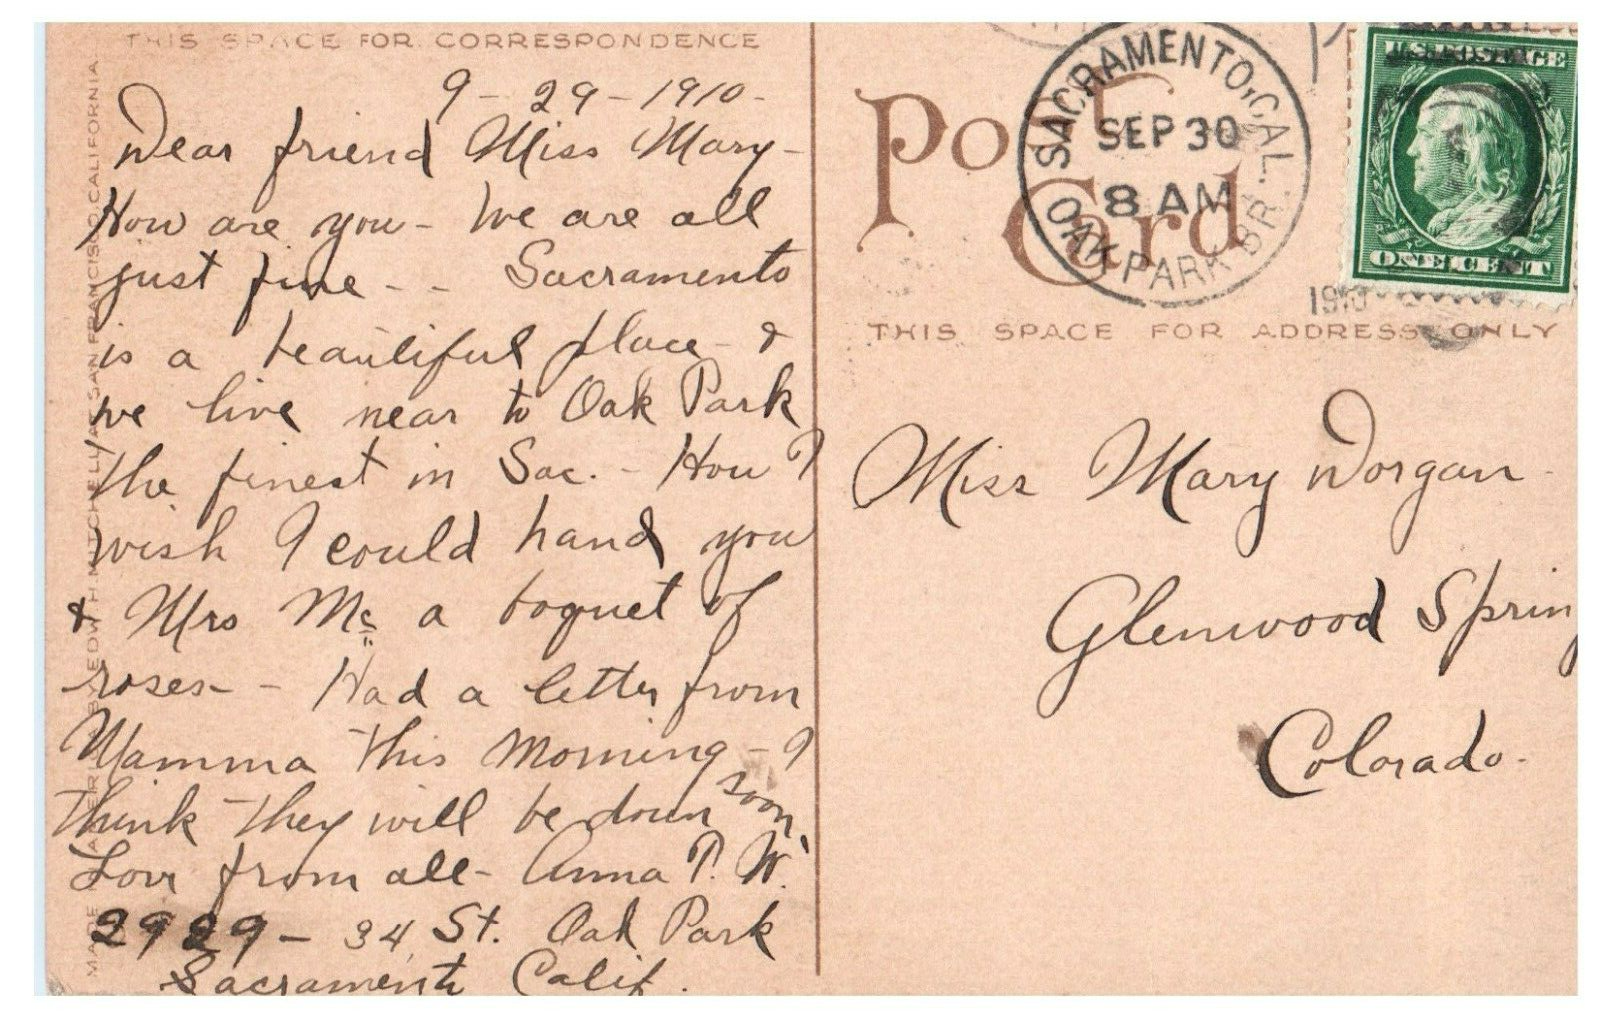 THIS SPACE FOR CORRESPONDENCE
9 - 29 - 1910 -
Dear friend Miss Mary -
How are you - We are all
just fine - - Sacramento
is a beautiful place - &
we live near to Oak Park
the finest in Sac. - How I
wish I could hand you
& Mrs Mc a boquet of
roses - - Had a letter from
Mamma this morning - I
think they will be down soon
Love from all - Anna P. W.
2929 - 34 St. Oak Park
Sacramento Calif.
EDW H MITCHELL SAN FRANCISCO, CALIFORNIA
Post Card
SACRAMENTO, CAL.
SEP 30
8 AM
OAK PARK BR.
1910
U.S. POSTAGE
ONE CENT
THIS SPACE FOR ADDRESS ONLY
Miss Mary Dorgan -
Glenwood Spring
Colorado -